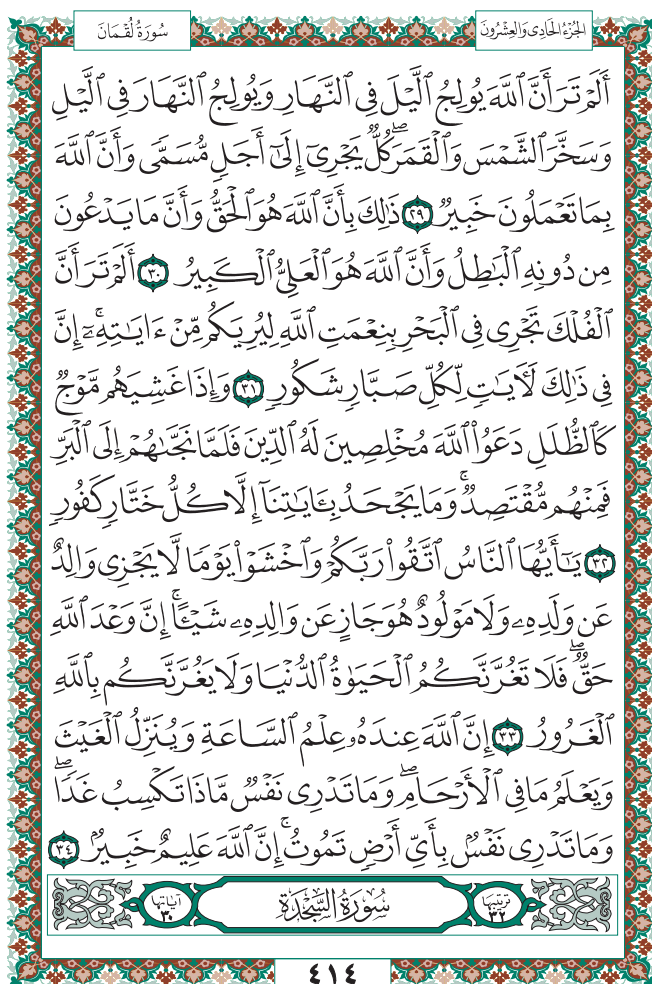 سُورَةُ لُقْمَانَ
الجُزْءُ الحَادِى وَالعِشْرُونَ
أَلَمْ تَرَ أَنَّ ٱللَّهَ يُولِجُ ٱلَّيْلَ فِى ٱلنَّهَارِ وَيُولِجُ ٱلنَّهَارَ فِى ٱلَّيْلِ
وَسَخَّرَ ٱلشَّمْسَ وَٱلْقَمَرَۖ كُلٌّ يَجْرِىٓ إِلَىٰٓ أَجَلٍ مُّسَمًّى وَأَنَّ ٱللَّهَ
بِمَا تَعْمَلُونَ خَبِيرٌ ٢٩ ذَٰلِكَ بِأَنَّ ٱللَّهَ هُوَ ٱلْحَقُّ وَأَنَّ مَا يَدْعُونَ
مِن دُونِهِ ٱلْبَٰطِلُ وَأَنَّ ٱللَّهَ هُوَ ٱلْعَلِىُّ ٱلْكَبِيرُ ٣٠ أَلَمْ تَرَ أَنَّ
ٱلْفُلْكَ تَجْرِى فِى ٱلْبَحْرِ بِنِعْمَتِ ٱللَّهِ لِيُرِيَكُم مِّنْ ءَايَٰتِهِۦٓۚ إِنَّ
فِى ذَٰلِكَ لَءَايَٰتٍ لِّكُلِّ صَبَّارٍ شَكُورٍ ٣١ وَإِذَا غَشِيَهُم مَّوْجٌ
كَٱلظُّلَلِ دَعَوُا۟ ٱللَّهَ مُخْلِصِينَ لَهُ ٱلدِّينَ فَلَمَّا نَجَّىٰهُمْ إِلَى ٱلْبَرِّ
فَمِنْهُم مُّقْتَصِدٌۚ وَمَا يَجْحَدُ بِـَٔايَٰتِنَآ إِلَّا كُلُّ خَتَّارٍ كَفُورٍ
٣٢ يَٰٓأَيُّهَا ٱلنَّاسُ ٱتَّقُوا۟ رَبَّكُمْ وَٱخْشَوْا۟ يَوْمًا لَّا يَجْزِى وَالِدٌ
عَن وَلَدِهِۦ وَلَا مَوْلُودٌ هُوَ جَازٍ عَن وَالِدِهِۦ شَيْـًٔاۚ إِنَّ وَعْدَ ٱللَّهِ
حَقٌّۖ فَلَا تَغُرَّنَّكُمُ ٱلْحَيَوٰةُ ٱلدُّنْيَا وَلَا يَغُرَّنَّكُم بِٱللَّهِ
ٱلْغَرُورُ ٣٣ إِنَّ ٱللَّهَ عِندَهُۥ عِلْمُ ٱلسَّاعَةِ وَيُنَزِّلُ ٱلْغَيْثَ
وَيَعْلَمُ مَا فِى ٱلْأَرْحَامِۖ وَمَا تَدْرِى نَفْسٌ مَّاذَا تَكْسِبُ غَدًاۖ
وَمَا تَدْرِى نَفْسٌۢ بِأَىِّ أَرْضٍ تَمُوتُۚ إِنَّ ٱللَّهَ عَلِيمٌ خَبِيرٌۢ ٣٤
ترتيبها ٣٢
سُورَةُ السَّجْدَةِ
آياتها ٣٠
٤١٤